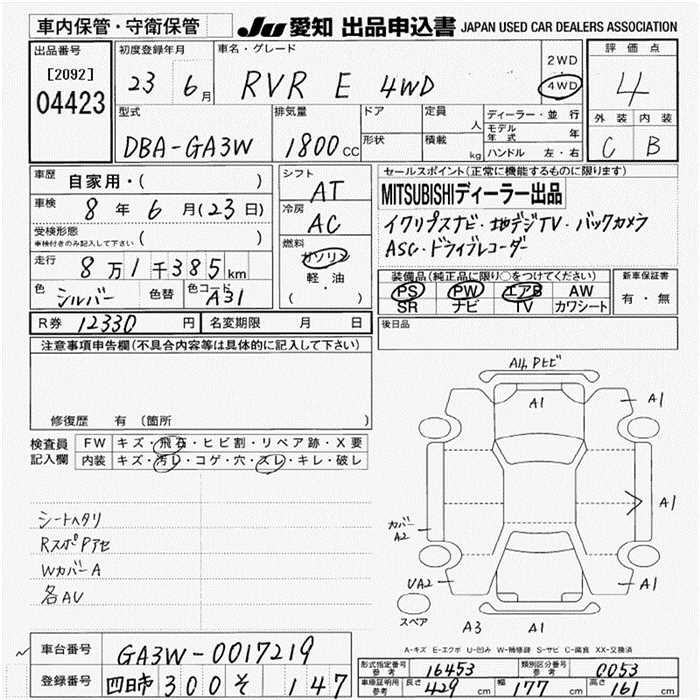 車内保管・守衛保管 JU 愛知 出品申込書 JAPAN USED CAR DEALERS ASSOCIATION
出品番号 [2092] 04423
初度登録年月 23 6月
車名・グレード RVR E 4WD
2WD
4WD
評価点 4
外装 内装
C B
型式 DBA-GA3W
排気量 1800cc
ドア 定員 人
形状 積載 kg
ディーラー・並行
モデル年式 年
ハンドル 左・右
車歴 自家用・( )
車検 8年6月(23日)
受検形態 ( )
車検付きのみ記入して下さい
走行 8万1千385km
色 シルバー 色替 色コード A31
シフト AT
冷房 AC
燃料 ガソリン
軽・油
( )
セールスポイント(正常に機能するものに限ります)
MITSUBISHIディーラー出品
イクリプスナビ・地デジTV・バックカメラ
ASC・ドライブレコーダー
装備品(純正品に限り○をつけてください)
PS PW エアB AW
SR ナビ TV カワシート
新車保証書
有・無
R券 12330円 名変期限 月 日
後日品
注意事項申告欄(不具合内容等は具体的に記入して下さい)
修復歴 有 (箇所 )
検査員記入欄
FW キズ・飛石・ヒビ割・リペア跡・X要
内装 キズ・汚レ・コゲ・穴・スレ・キレ・破レ
シートヘタリ
RスポPアセ
WカバーA
各AU
A14,Pヒビ
A1
A1
A1
カバーA2
UA2
A1
スペア
A3 A1
A-キズ E-エクボ U-凹み W-補修跡 S-サビ C-腐食 XX-交換済
車台番号 GA3W-0017219
登録番号 四日市 300 そ 147
形式指定番号 参考 16453 類別区分番号 参考 0053
車庫証明用 参考 長さ 429cm 幅 177cm 高さ 161cm